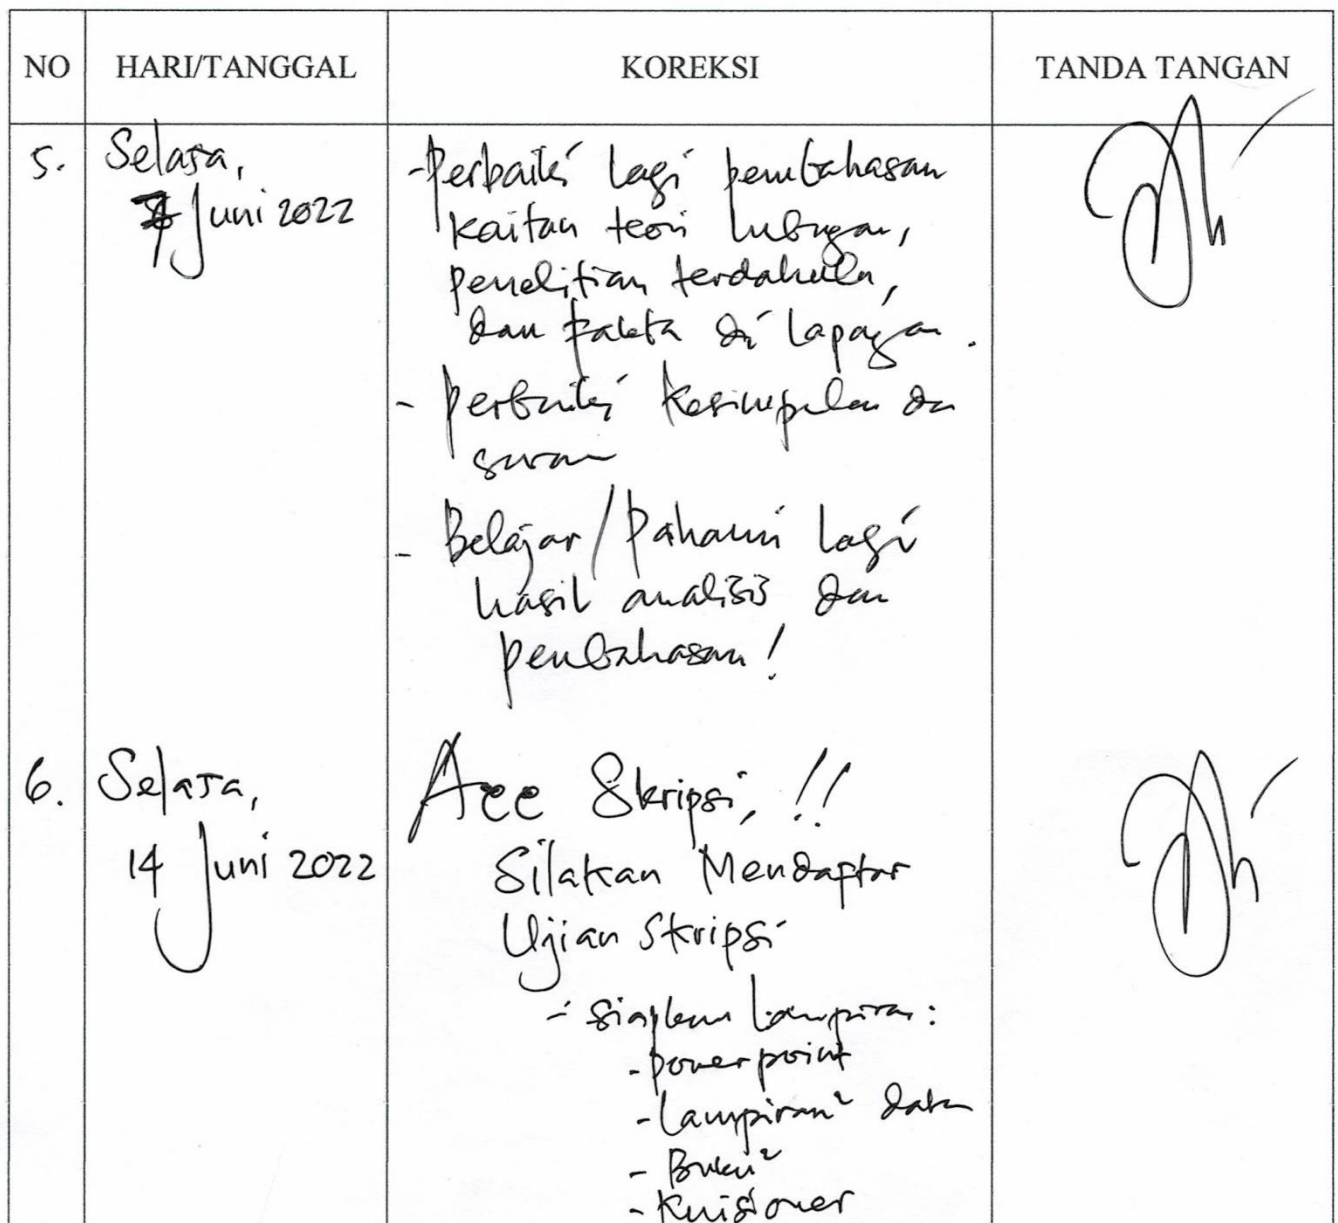 NO HARI/TANGGAL KOREKSI TANDA TANGAN
5. Selasa,
7 Juni 2022
- Perbaiki lagi pembahasan
kaitan teori hubugan,
penelitian terdahulu,
dan fakta di lapagan.
- Perbaiki kesimpulan dan
saran
- Belajar/Pahami lagi
hasil analisis dan
pembahasan!
6. Selasa,
14 Juni 2022
Acc Skripsi, !!
Silakan Mendaftar
Ujian Skripsi
- Siapkan lampiran:
- power point
- Lampiran² data
- Buku²
- Kuisioner